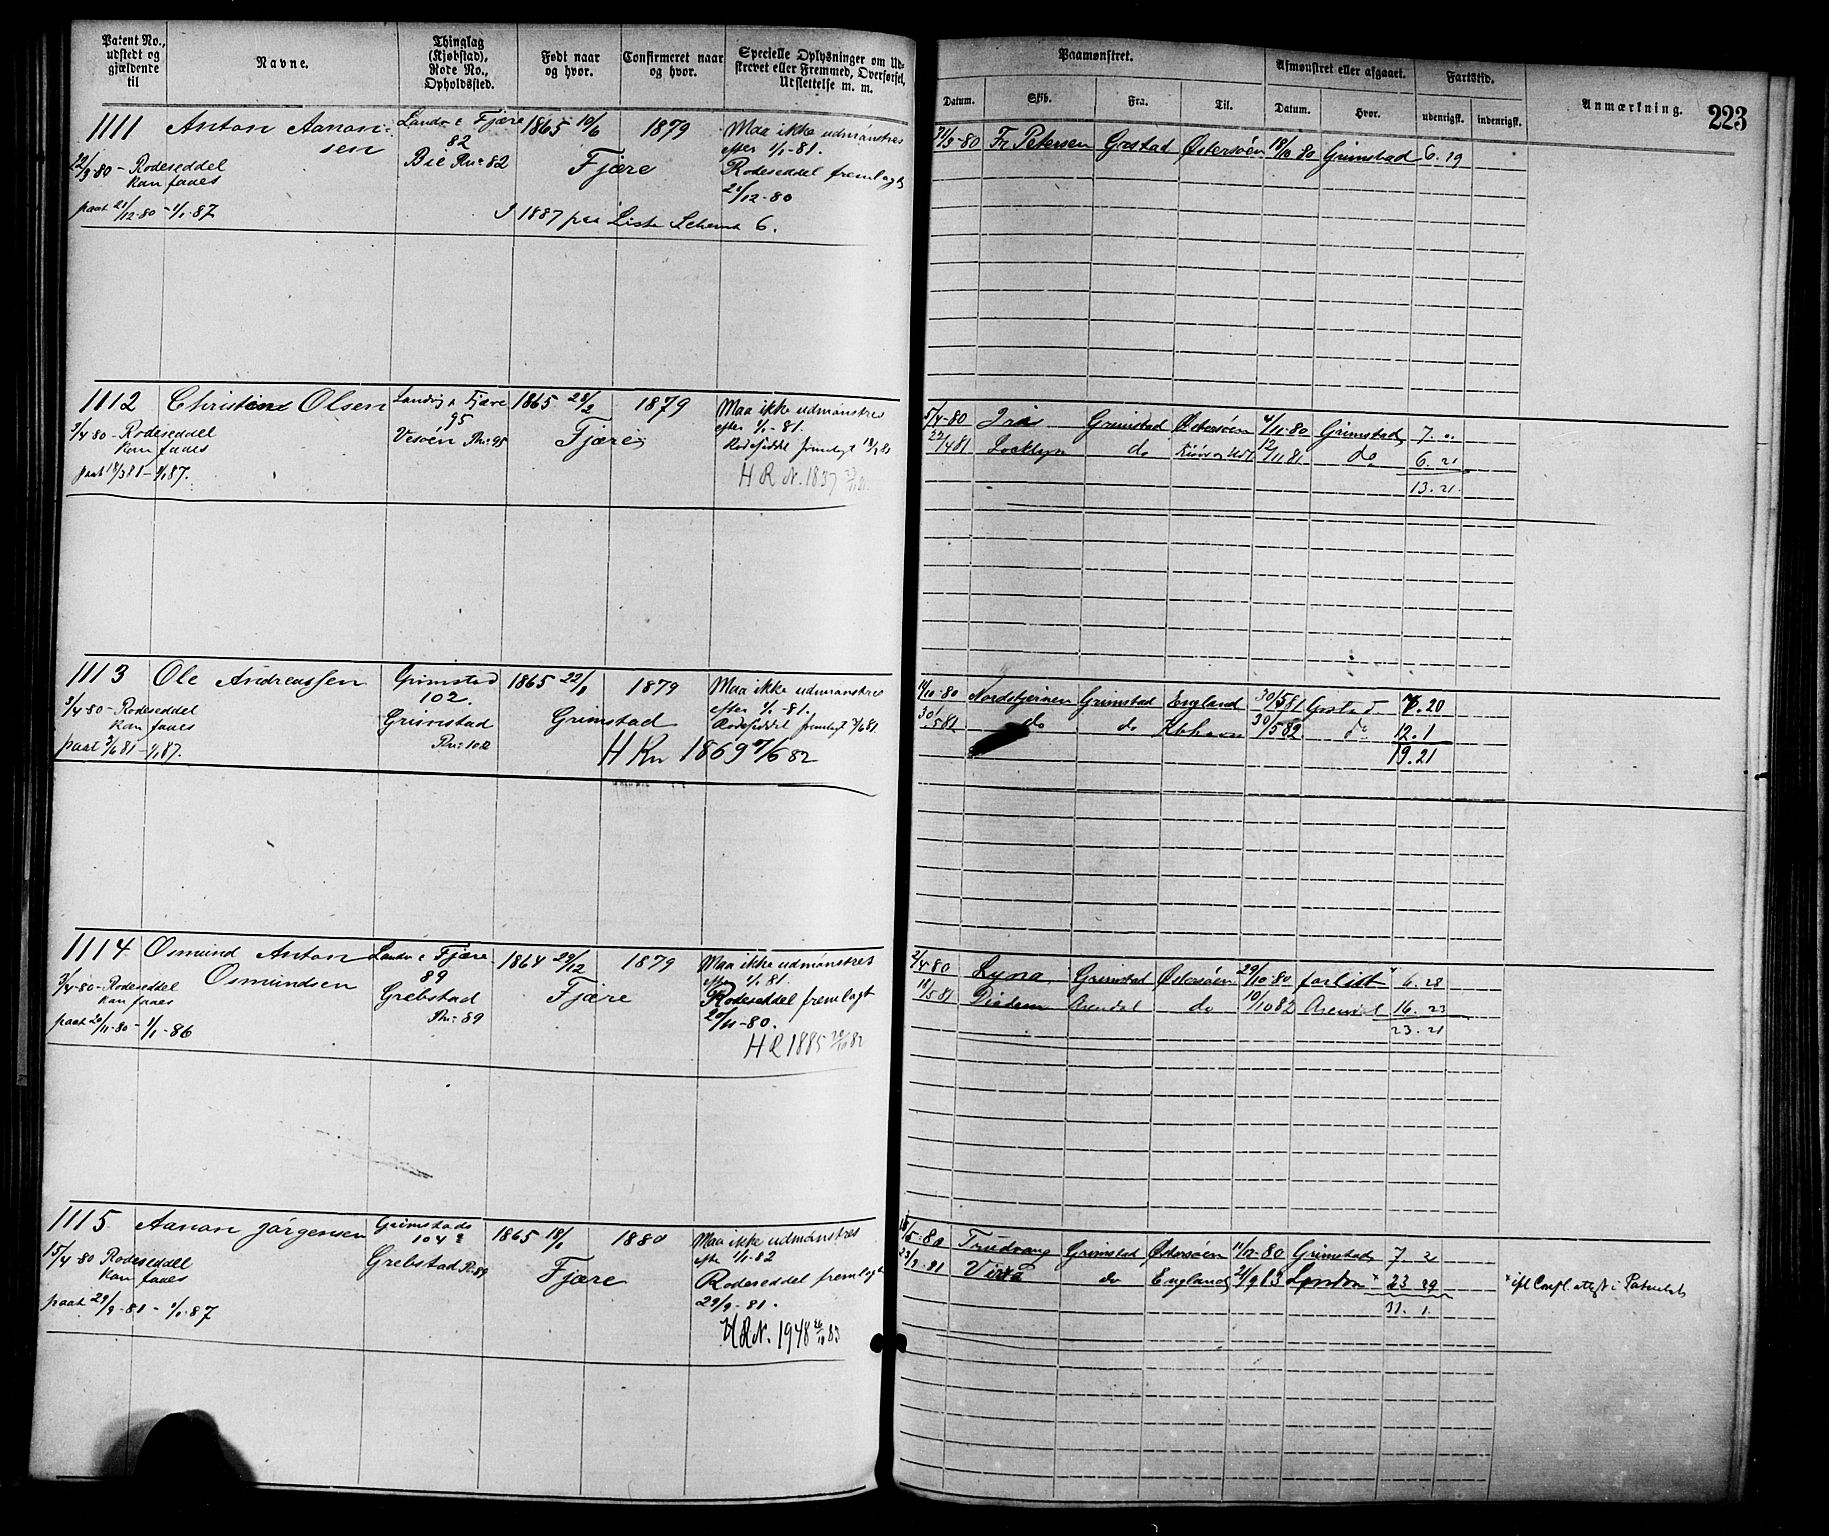 Patent No., udstedt og gjældende til
Navne.
Thinglag (Kjøbstad), Rode No., Opholdssted.
Født naar og hvor.
Confirmeret naar og hvor.
Specielle Oplysninger om Udskrevet eller Fremmed, Overførsel, Udslettelse m. m.
Paamønstret.
Datum. Skib. Fra. Til.
Afmønstret eller afgaaet.
Datum. Hvor.
Fartstid.
udenrigsk. indenrigsk.
Anmærkning.
223
1111 Anton Aanon-
sen
Landv & Fjære
82
Bie Rn: 82
1865 10/6 1879
Fjære
Maa ikke udmønstres
efter 1/1-81.
Rodeseddel fremlagt
21/12-80
22/3-80 - Rodeseddel
kan faaes
paat 21/12-80 - 1/1-87
I 1887 paa Liste Schema 6.
31/3-80 Fr Petersen Grstad Østersøen 18/10 80 Grimstad 6. 19
1112 Christian Olsen
Landvig & Fjære
95
Vesøen Rn: 95
1865 28/2 1879
Fjære
Maa ikke udmønstres
efter 1/1-81.
Rodeseddel fremlagt 18/3 81
H R N. 1837
3/4 80 - Rodeseddel
kan faaes
paat 18/3 81 - 1/1 87.
5/4-80 Iris Grimstad Østersøen 4/11-80 Grimstad 7. "
22/4 81 do 12/11 81 do 6. 21
13. 21
1113 Ole Andreassen
Grimstad
102.
Grimstad
Rn: 102
1865 22/1 1879
Grimstad
Maa ikke udmønstres
efter 1/1-81.
Rodeseddel fremlagt 3/6 81.
H Rn 1869 7/6 82
3/4-80 - Rodeseddel
kan faaes
paat 3/6 81 - 1/1 87.
14/10-80 Nordstjernen Grimstad England 30/5 81 Grstad 7. 20
30/5 81 do do Kbhavn 30/5 82 do 12. 1
19. 21
1114 Osmund Anton
Osmundsen
Landv & Fjære
89
Grebstad
Rn: 89
1864 29/12 1879
Fjære
Maa ikke udmønstres
efter 1/1 81.
Rodeseddel fremlagt
20/11-80.
H R 1885 28/10 82
3/4-80 - Rodeseddel
kan faaes
paat 20/11-80 - 1/1-86
2/4-80 Lyna Grimstad Østersøen 29/10-80 forlist 6. 28
11/5 81 Diadem Arendal do 10/10 82 Arendal 16. 23
23. 21
1115 Aanon Jørgensen
Grimstads
104
Grebstad Rn: 89
1865 18/1 1880
Fjære
Maa ikke udmønstres
efter 1/1-82
Rodeseddel fremlagt
29/9-81.
H R N. 1948 26/10 83
15/4 80 Rodeseddel
kan faaes
paat 29/9-81 - 1/1-87
18/5-80 Trudvang Grimstad Østersøen 11/12-80 Grimstad 7. 2
23/9-81 do England 21/9 83 London * 23 29
31. 1.
* ifl Consl. attest i Patentet